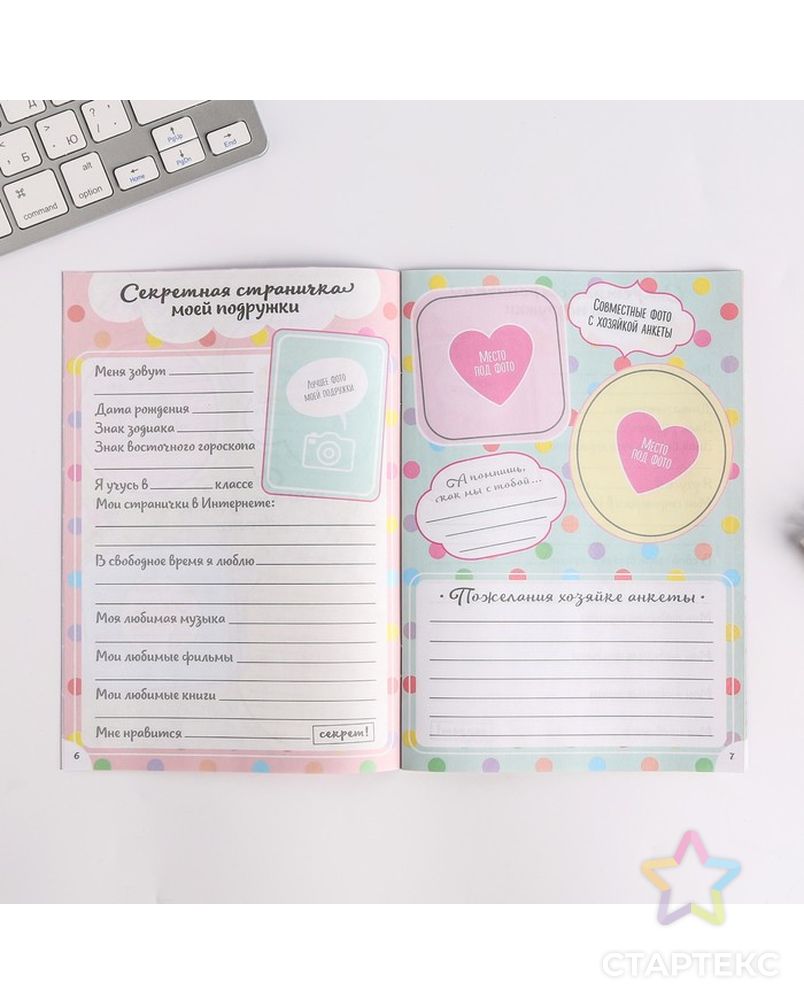 Д
Б
Ю
.
/
?
,
⌘
command
alt
option
PgUp
PgDn
Home
End
Секретная страничка
моей подружки
Меня зовут
Дата рождения
Знак зодиака
Знак восточного гороскопа
Я учусь в классе
Мои странички в Интернете:
В свободное время я люблю
Моя любимая музыка
Мои любимые фильмы
Мои любимые книги
Мне нравится секрет!
Лучшее фото
моей подружки
6
Место
под фото
Совместные фото
с хозяйкой анкеты
Место
под фото
А помнишь,
как мы с тобой...
• Пожелания хозяйке анкеты •
7
СТАРТЕКС